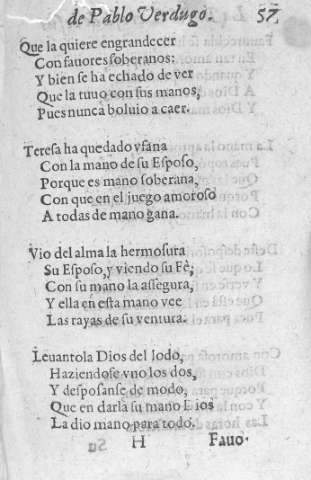 de Pablo Verdugo. 57.
Que la quiere engrandecer
Con fauores soberanos:
Y bien se ha echado de ver
Que la tuuo con sus manos,
Pues nunca boluio a caer.
Teresa ha quedado vfana
Con la mano de su Esposo,
Porque es mano soberana,
Con que en el juego amoroso
A todas de mano gana.
Vio del alma la hermosura
Su Esposo, y viendo su Fè,
Con su mano la assegura,
Y ella en esta mano vee
Las rayas de su ventura.
Leuantola Dios del lodo,
Haziendose vno los dos,
Y desposanse de modo,
Que en darla su mano Dios
La dio mano para todo.
H Fauo-